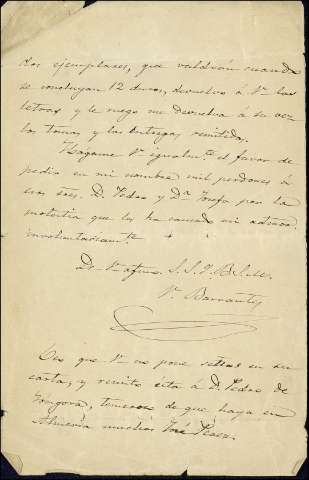 dos ejemplares, que valdrán cuando
se concluyan 12 duros, devuelvo á V. las
letras y le ruego me devuelva á su vez
los tomos y las entregas remitida.
Hágame V. igualm.te el favor de
pedir en mi nombre mil perdones á
esos Sres. D. Pedro y D.ª Josefa por la
molestia que les ha causado mi
involuntariam.te
De V. afmo. S. S. Q. B. S. M.
V. Barrantes
Veo que V. no pone señas en su
carta, y remito esta á D. Pedro de
Góngora, temeroso de que haya en
Almería muchos José Pérez.